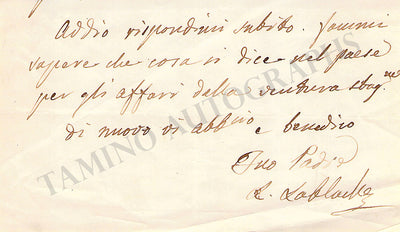 Addio rispondimi subito. Fammi
sapere che cosa si dice nel paese
per gli affari della ventura stag.ne
di nuovo vi abbraccio e benedico
Tuo Padre
L. Lablache
TAMINO AUTOGRAPHS